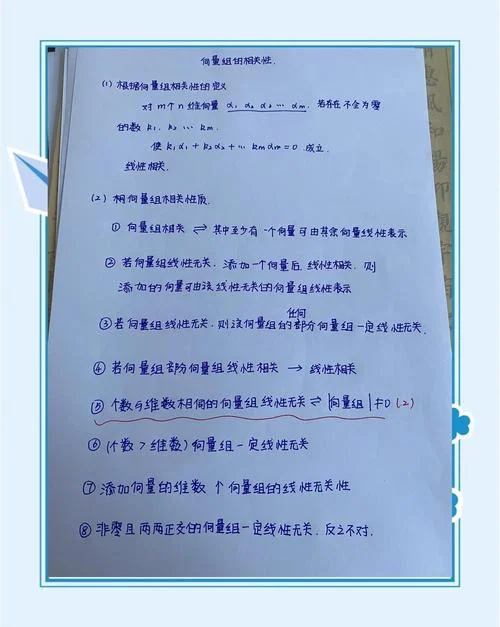 向量组的相关性.
(1) 根据向量组相关性的定义
对m个n维向量 α₁ α₂ α₃ ⋯ αm. 若存在不全为零
的数 k₁. k₂ ⋯ km.
使 k₁α₁ + k₂α₂ + ⋯ kmαm = 0 成立.
线性相关.
(2) 向量组相关性质.
① 向量组相关 ⇌ 其中至少有一个向量可由其余向量线性表示
② 若向量组线性无关. 添加一个向量后. 线性相关. 则
添加的向量可由该线性无关的向量组线性表示
任何
③ 若向量组线性无关. 则该向量组的部分向量组一定线性无关.
④ 若向量组部分向量组线性相关 → 线性相关
⑤ 个数与维数相同的向量组线性无关 ⇌ |向量组| ≠ 0 (2)
⑥ (个数 > 维数) 向量组一定线性无关
⑦ 添加向量的维数 个向量组的线性无关性
⑧ 非零且两两正交的向量组一定线性无关. 反之不对.